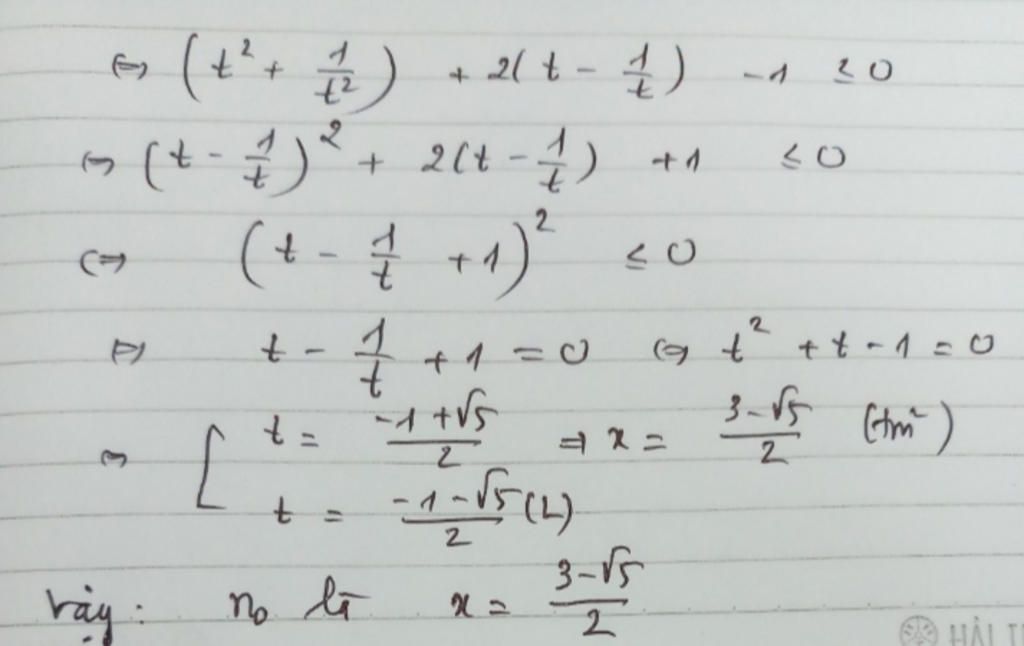 ⇔ (t² + 1/t²) + 2(t - 1/t) - 1 ≤ 0
⇔ (t - 1/t)² + 2(t - 1/t) + 1 ≤ 0
⇔ (t - 1/t + 1)² ≤ 0
⇔ t - 1/t + 1 = 0 ⇔ t² + t - 1 = 0
⇔ [ t = (-1 + √5)/2 ⇒ x = (3 - √5)/2 (tm²)
t = (-1 - √5)/2 (L)
Vậy: n₀ là x = (3 - √5)/2
HẢI